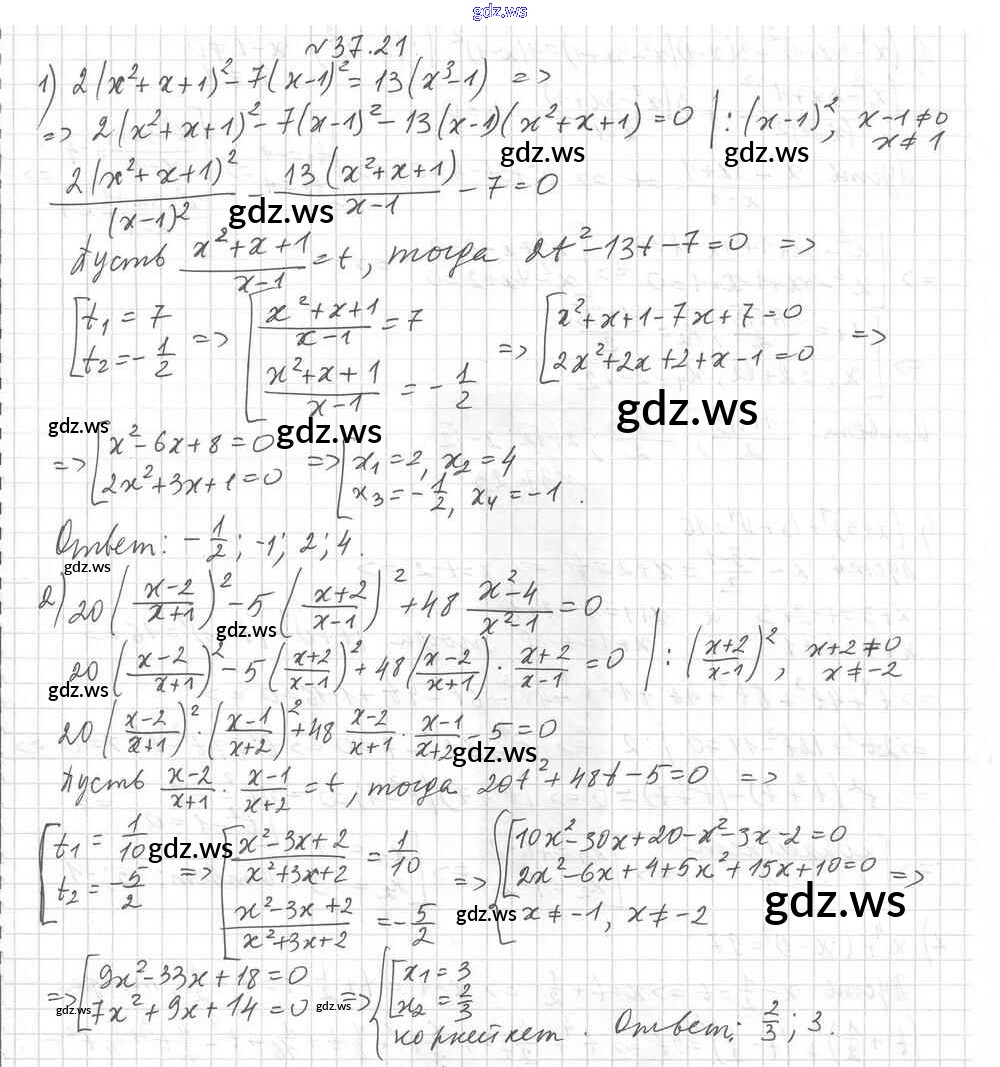 gdz.ws
№ 37.21.
1) 2(x²+x+1)²-7(x-1)²=13(x³-1) =>
=> 2(x²+x+1)²-7(x-1)²-13(x-1)(x²+x+1)=0 | :(x-1)², x-1≠0
x≠1
gdz.ws gdz.ws
2(x²+x+1)²/(x-1)² - 13(x²+x+1)/(x-1) - 7=0
gdz.ws
Пусть (x²+x+1)/(x-1)=t, тогда 2t²-13t-7=0 =>
[t₁=7 => [(x²+x+1)/(x-1)=7 => [x²+x+1-7x+7=0 =>
[t₂=-1/2 [(x²+x+1)/(x-1)=-1/2 [2x²+2x+2+x-1=0
gdz.ws gdz.ws gdz.ws
=> [x²-6x+8=0 => [x₁=2, x₂=4
[2x²+3x+1=0 [x₃=-1/2, x₄=-1.
Ответ: -1/2; -1; 2; 4.
gdz.ws
2) 20((x-2)/(x+1))²-5((x+2)/(x-1))²+48 (x²-4)/(x²-1)=0
gdz.ws
20((x-2)/(x+1))²-5((x+2)/(x-1))²+48((x-2)/(x+1))·(x+2)/(x-1)=0 | :((x+2)/(x-1))², x+2≠0
x≠-2
gdz.ws
20((x-2)/(x+1))²·((x-1)/(x+2))²+48 (x-2)/(x+1)·(x-1)/(x+2)-5=0
gdz.ws
Пусть (x-2)/(x+1)·(x-1)/(x+2)=t, тогда 20t²+48t-5=0 =>
[t₁=1/10 => [(x²-3x+2)/(x²+3x+2)=1/10 => {[10x²-30x+20-x²-3x-2=0
[t₂=-5/2 [(x²-3x+2)/(x²+3x+2)=-5/2 [2x²-6x+4+5x²+15x+10=0 =>
x≠-1, x≠-2
gdz.ws gdz.ws gdz.ws
=> [9x²-33x+18=0 => {[x₁=3
[7x²+9x+14=0 [x₂=2/3
корней нет. Ответ: 2/3; 3.
gdz.ws gdz.ws